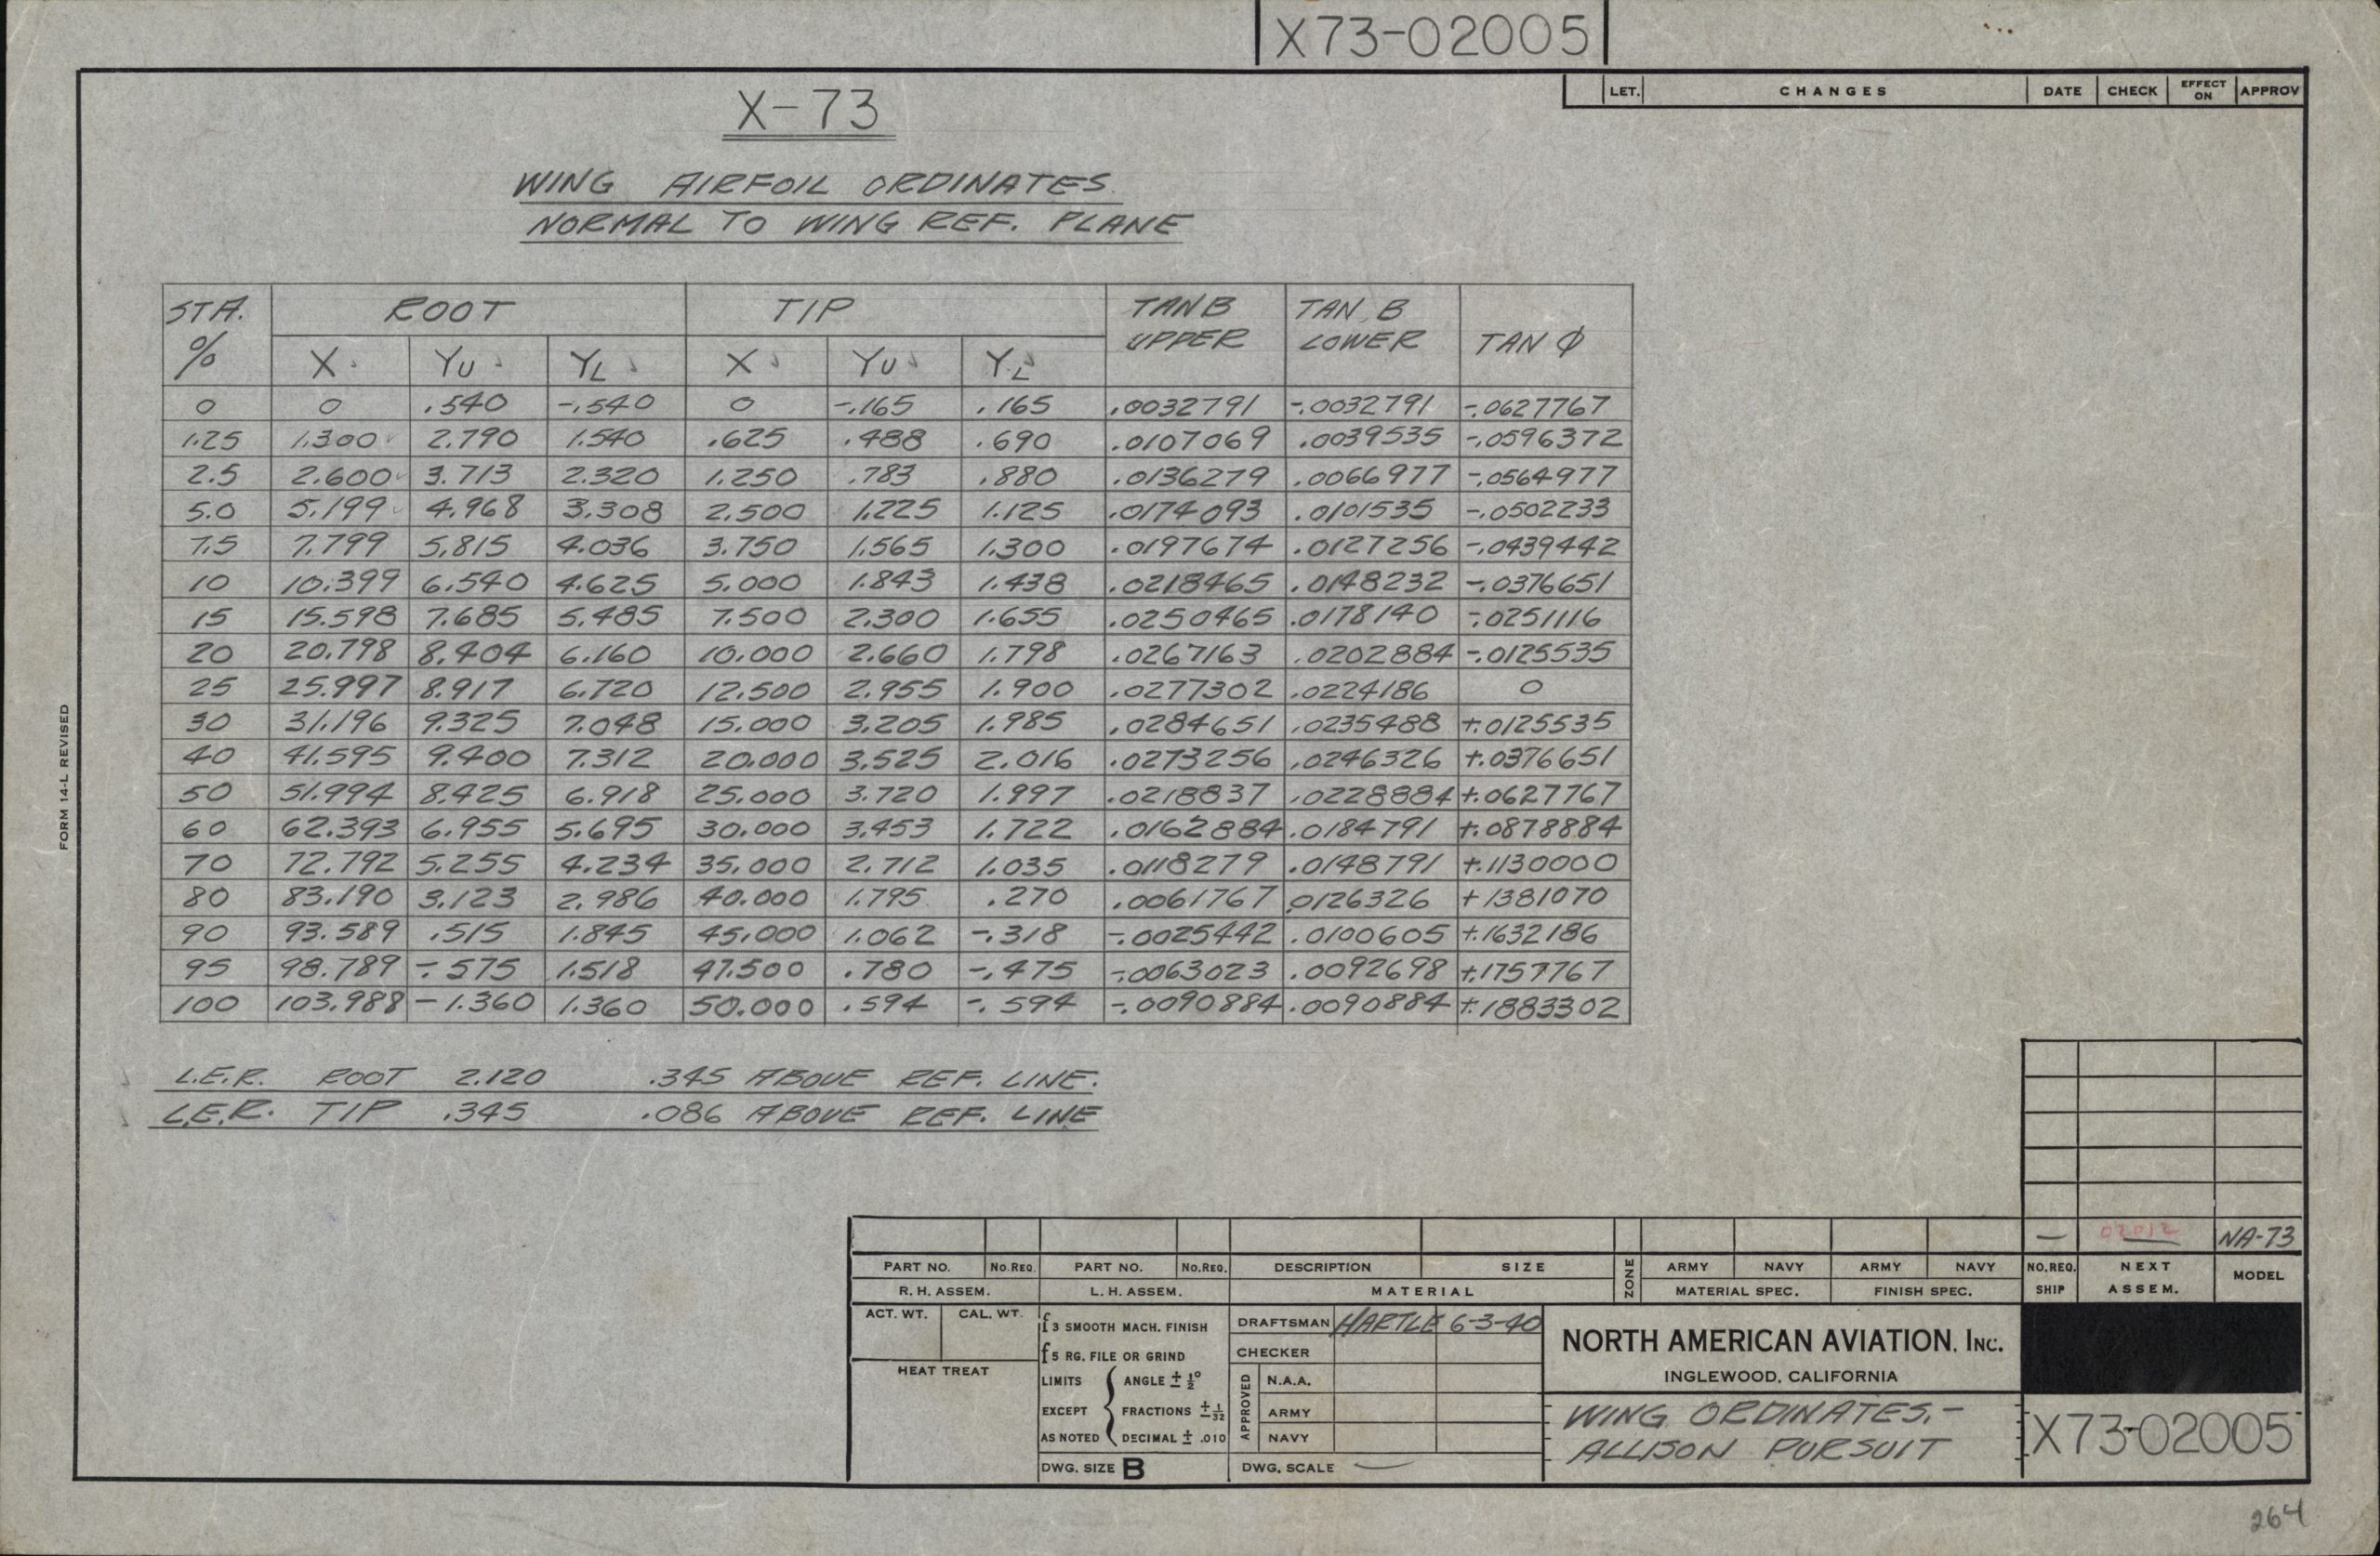 X73-02005
LET. CHANGES DATE CHECK EFFECT ON APPROV
X-73
WING AIRFOIL ORDINATES
NORMAL TO WING REF. PLANE
STA. % ROOT TIP TAN B UPPER TAN B LOWER TAN Φ
X YU YL X YU YL
0 0 .540 -.540 0 -.165 .165 .0032791 -.0032791 -.0627767
1.25 1.300 2.790 1.540 .625 .488 .690 .0107069 .0039535 -.0596372
2.5 2.600 3.713 2.320 1.250 .783 .880 .0136279 .0066977 -.0564977
5.0 5.199 4.968 3.308 2.500 1.225 1.125 .0174093 .0101535 -.0502233
7.5 7.799 5.815 4.036 3.750 1.565 1.300 .0197674 .0127256 -.0439442
10 10.399 6.540 4.625 5.000 1.843 1.438 .0218465 .0148232 -.0376651
15 15.598 7.685 5.485 7.500 2.300 1.655 .0250465 .0178140 -.0251116
20 20.798 8.404 6.160 10.000 2.660 1.798 .0267163 .0202884 -.0125535
25 25.997 8.917 6.720 12.500 2.955 1.900 .0277302 .0224186 0
30 31.196 9.325 7.048 15.000 3.205 1.985 .0284651 .0235488 +.0125535
40 41.595 9.400 7.312 20.000 3.525 2.016 .0273256 .0246326 +.0376651
50 51.994 8.425 6.918 25.000 3.720 1.997 .0218837 .0228884 +.0627767
60 62.393 6.955 5.695 30.000 3.453 1.722 .0162884 .0184791 +.0878884
70 72.792 5.255 4.234 35.000 2.712 1.035 .0118279 .0148791 +.1130000
80 83.190 3.123 2.986 40.000 1.795 .270 .0061767 .0126326 +1381070
90 93.589 .515 1.845 45.000 1.062 -.318 -.0025442 .0100605 +.1632186
95 98.789 -.575 1.518 47.500 .780 -.475 -.0063023 .0092698 +.1757767
100 103.988 -1.360 1.360 50.000 .594 -.594 -.0090884 .0090884 +.1883302
L.E.R. ROOT 2.120 .345 ABOVE REF. LINE.
L.E.R. TIP .345 .086 ABOVE REF. LINE
FORM 14-L REVISED
— 02012 NA-73
PART NO. NO.REQ. PART NO. NO.REQ. DESCRIPTION SIZE ZONE ARMY NAVY ARMY NAVY NO.REQ. SHIP NEXT ASSEM. MODEL
R. H. ASSEM. L. H. ASSEM. MATERIAL MATERIAL SPEC. FINISH SPEC.
ACT. WT. CAL. WT.
HEAT TREAT
f3 SMOOTH MACH. FINISH
f5 RG. FILE OR GRIND
LIMITS EXCEPT AS NOTED
ANGLE ± 1/2°
FRACTIONS ± 1/32
DECIMAL ± .010
DWG. SIZE B
DRAFTSMAN HARTLE 6-3-40
CHECKER
APPROVED
N.A.A.
ARMY
NAVY
DWG. SCALE —
NORTH AMERICAN AVIATION, INC.
INGLEWOOD, CALIFORNIA
WING ORDINATES.-
ALLISON PURSUIT
X73-02005
264